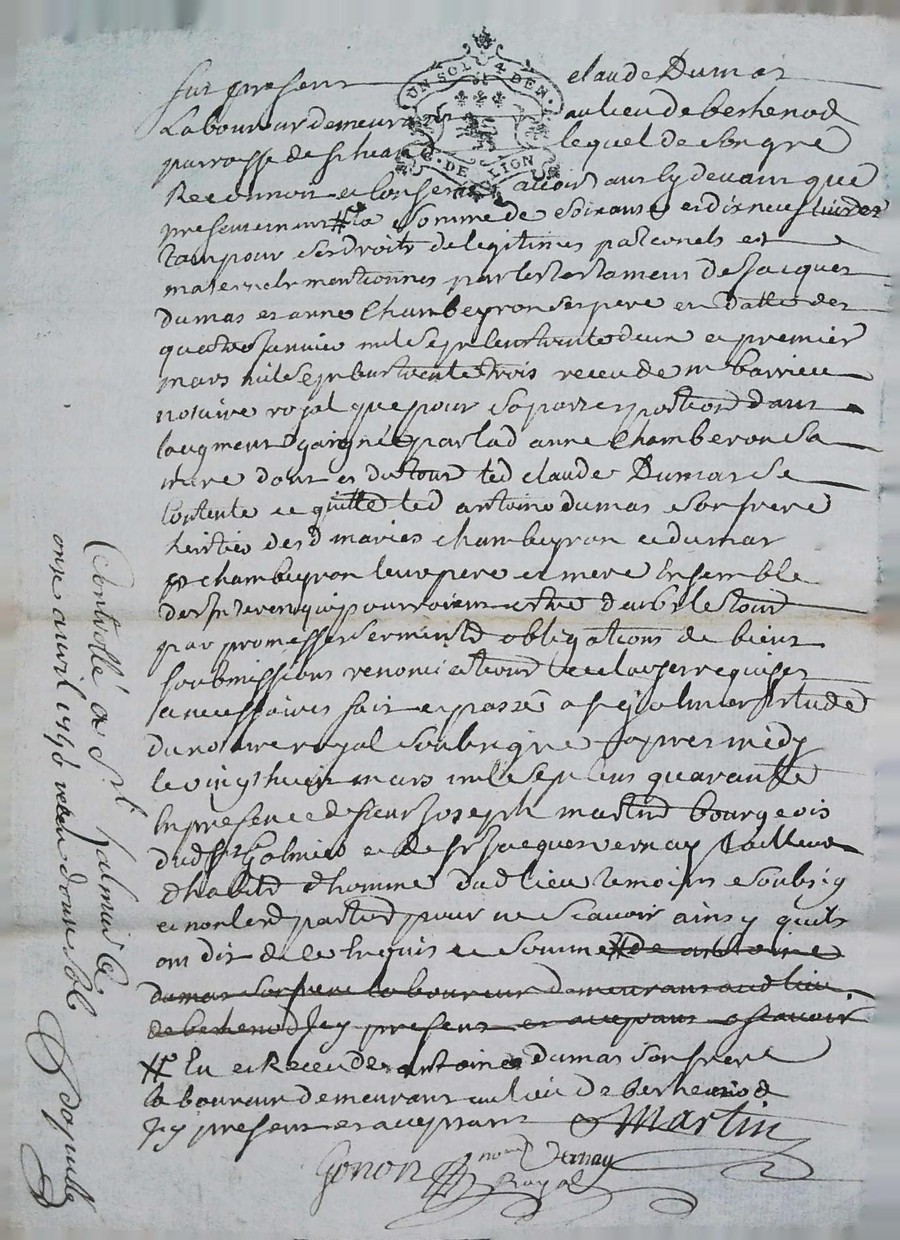 fut present claude Dumas
UN SOL 4 DEN.
G. DE LION
Laboureur demeurant au lieu de berhenod
parroisse de lequel de son gré
Reconnoit et Confesse avoir cy devant que
presentement # la somme de soixante et dix neuf livres
tant pour ses droits de legitimes paternels et
maternels mentionnes par les testament de Jacques
dumas et anne Chambeyron ses pere en datte des
quatre Janvier mil sept cent trente deux et premier
mars mil sept cent trente trois receu de me barrieu
notaire royal que pour sa part et portion dans
laugment gaigné par lad anne Chamberon sa
mere dont et du tout led claude Dumas se
Contente et quitte led antoine dumas son frere
heritier desd maries chambeyron et dumas
chambeyron leur pere et mere Ensemble
des Interets qui pourroient estre deub le tout
par promesses serment obligations de biens
soubmissions renonciations et clauses requises
et necessaires fait et passé a st galmier Estude
du notaire royal soubsigné apres midy
le vingt huit mars mil sept cens quarante
En presence de sieur Joseph martin bourgeois
dud st Galmier et de sr Jacques vernay Tailleur
d'habits d'homme dud lieu temoins soubsig
et non lesd parties pour ne scavoir ainsy quils
ont dit de ce Enquis et sommé # de antoine
dumas son frere laboureur demeurant aud lieu
de berhenod Icy present et acceptant a scavoir
# Eu et Receu de antoine dumas son frere
laboureur demeurant au lieu de berhenod
Icy present et acceptant Martin
Gonon nore Vernay
Royal
Controllé a St Galmier le
onze avril 1740 receu douze sols